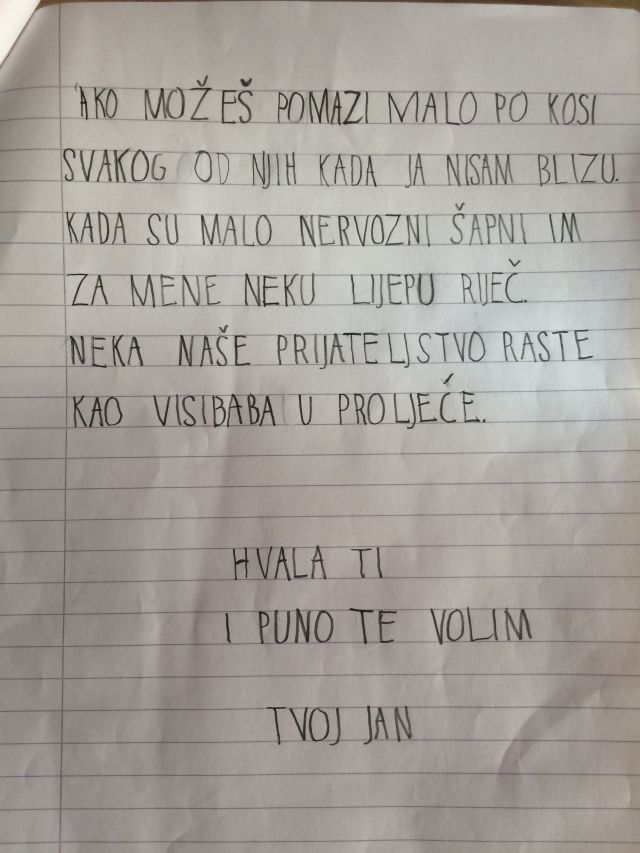 AKO MOŽEŠ POMAZI MALO PO KOSI
SVAKOG OD NJIH KADA JA NISAM BLIZU.
KADA SU MALO NERVOZNI ŠAPNI IM
ZA MENE NEKU LIJEPU RIJEČ.
NEKA NAŠE PRIJATELJSTVO RASTE
KAO VISIBABA U PROLJEĆE.
HVALA TI
I PUNO TE VOLIM
TVOJ JAN